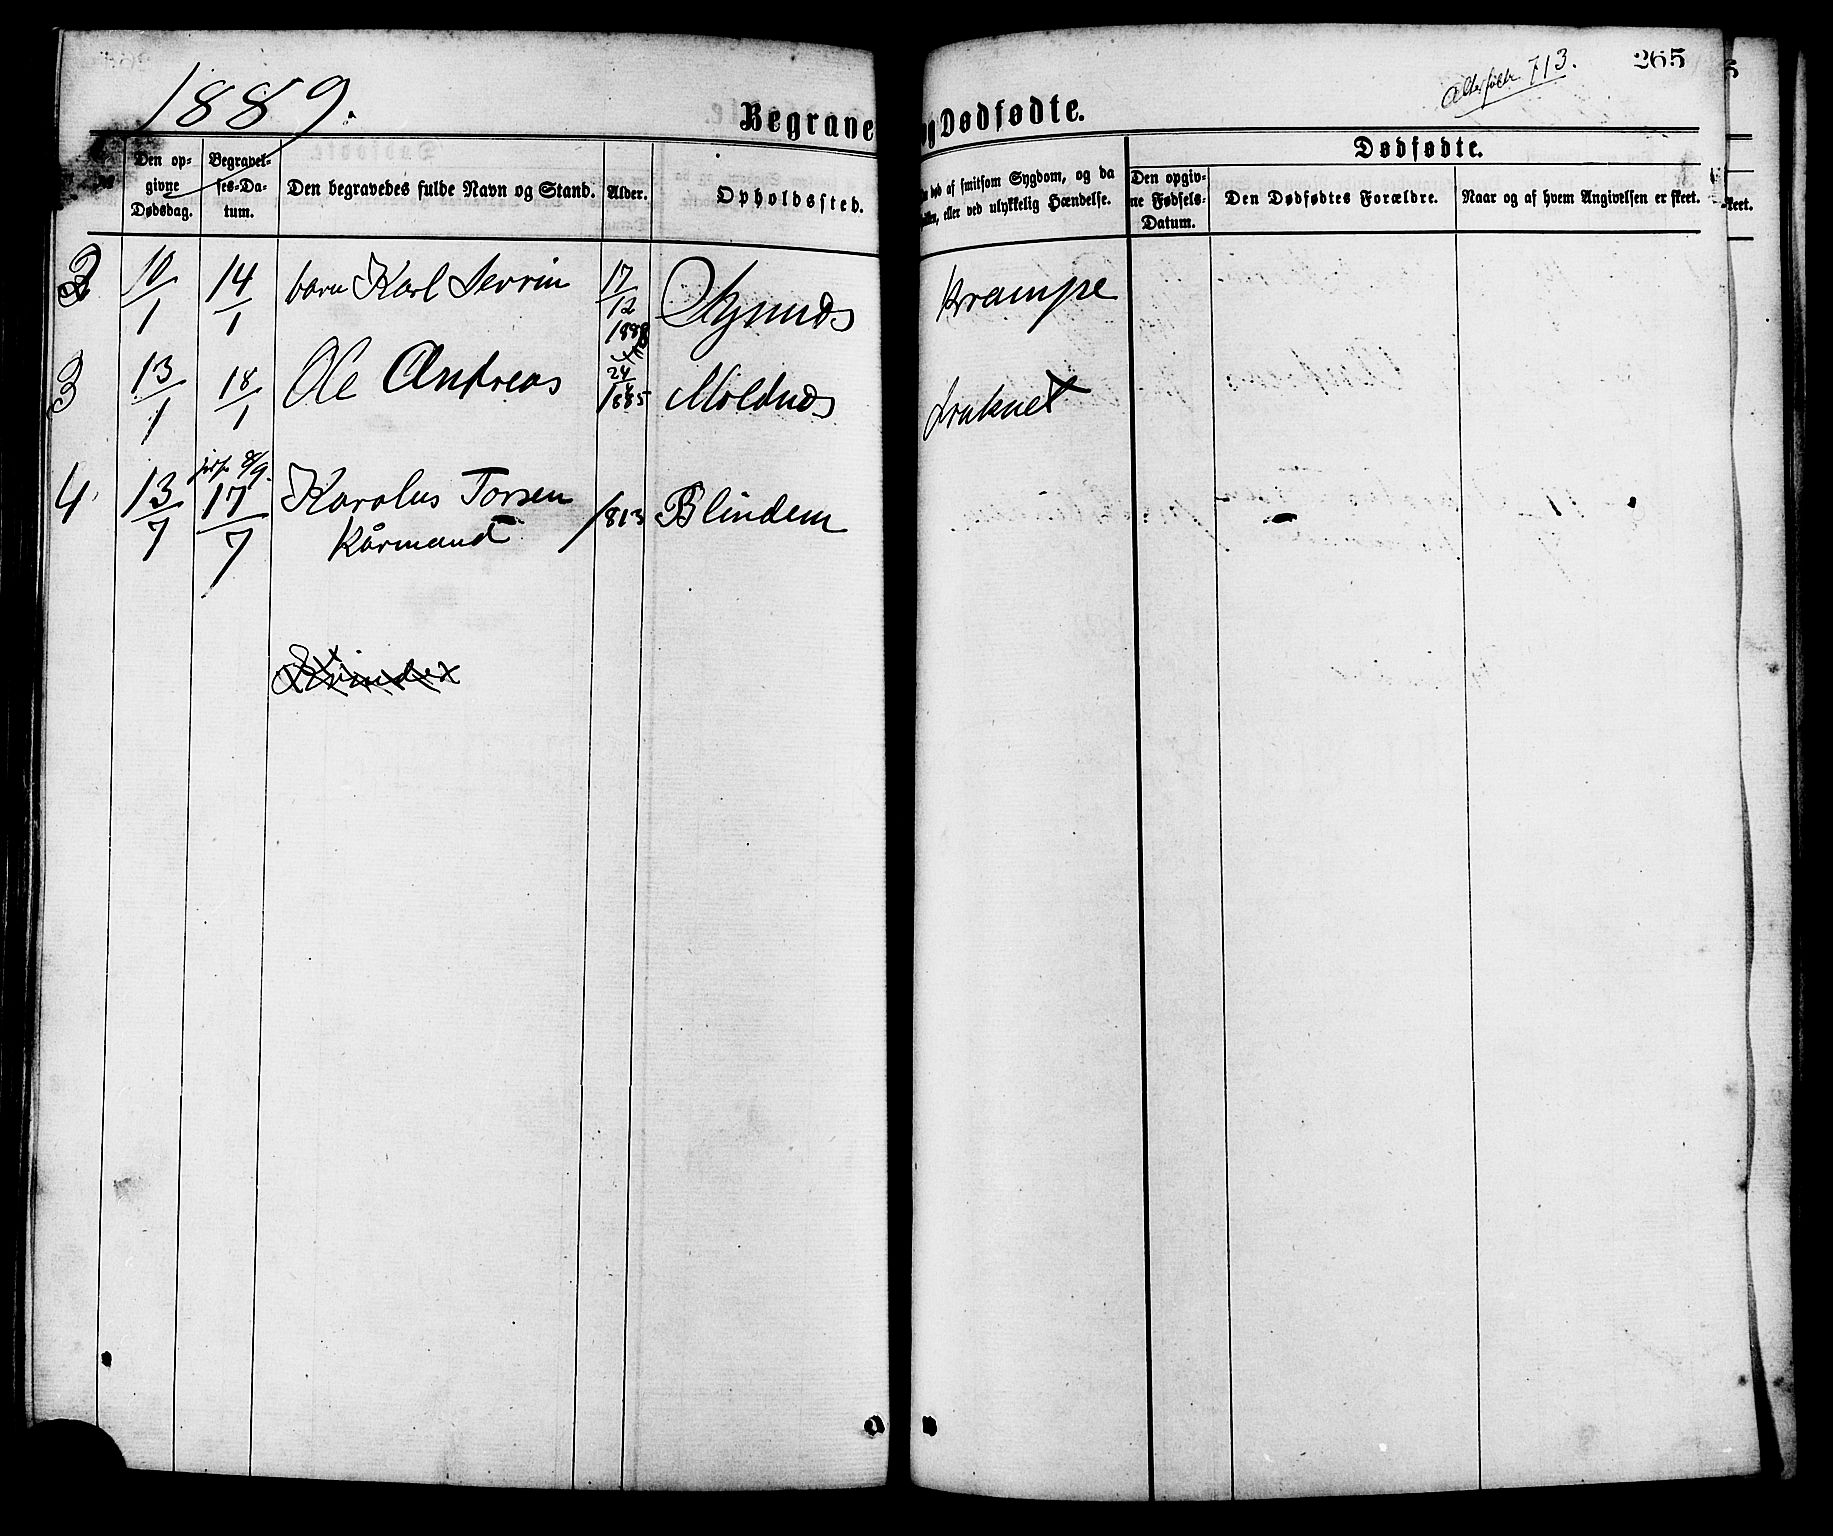 1889.
Begrave
og Dødfødte.
713.
265
Den op-
givne
Dødsdag.
Begravel-
ses-Da-
tum.
Den begravedes fulde Navn og Stand.
Alder.
Opholdssted.
død af smitsom Sygdom, og da
eller ved ulykkelig Hændelse.
Dødfødte.
Den opgiv-
ne Fødsels-
Datum.
Den Dødfødtes Forældre.
Naar og af hvem Angivelsen er skeet.
skeet.
2 10/1 14/1 barn Karl Severin 17/12 1888 krampe
3 13/1 18/1 Ole Andreas 24/ 1885 Moldnes druknet
8/9.
4 13/7 17/7 Karolus Torsen 1813 Blindem
kårmand